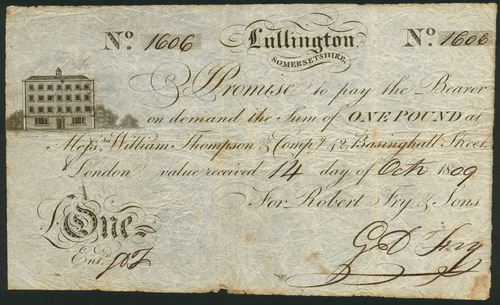 No. 1606 Lullington No. 1606
SOMERSETSHIRE.
I Promise to pay the Bearer
on demand the Sum of ONE POUND at
Messrs. William Thompson & Compy. 42 Basinghall Street
London value received 14 day of Octr 1809
For Robert Fry & Sons
£One
Entd.
Fry